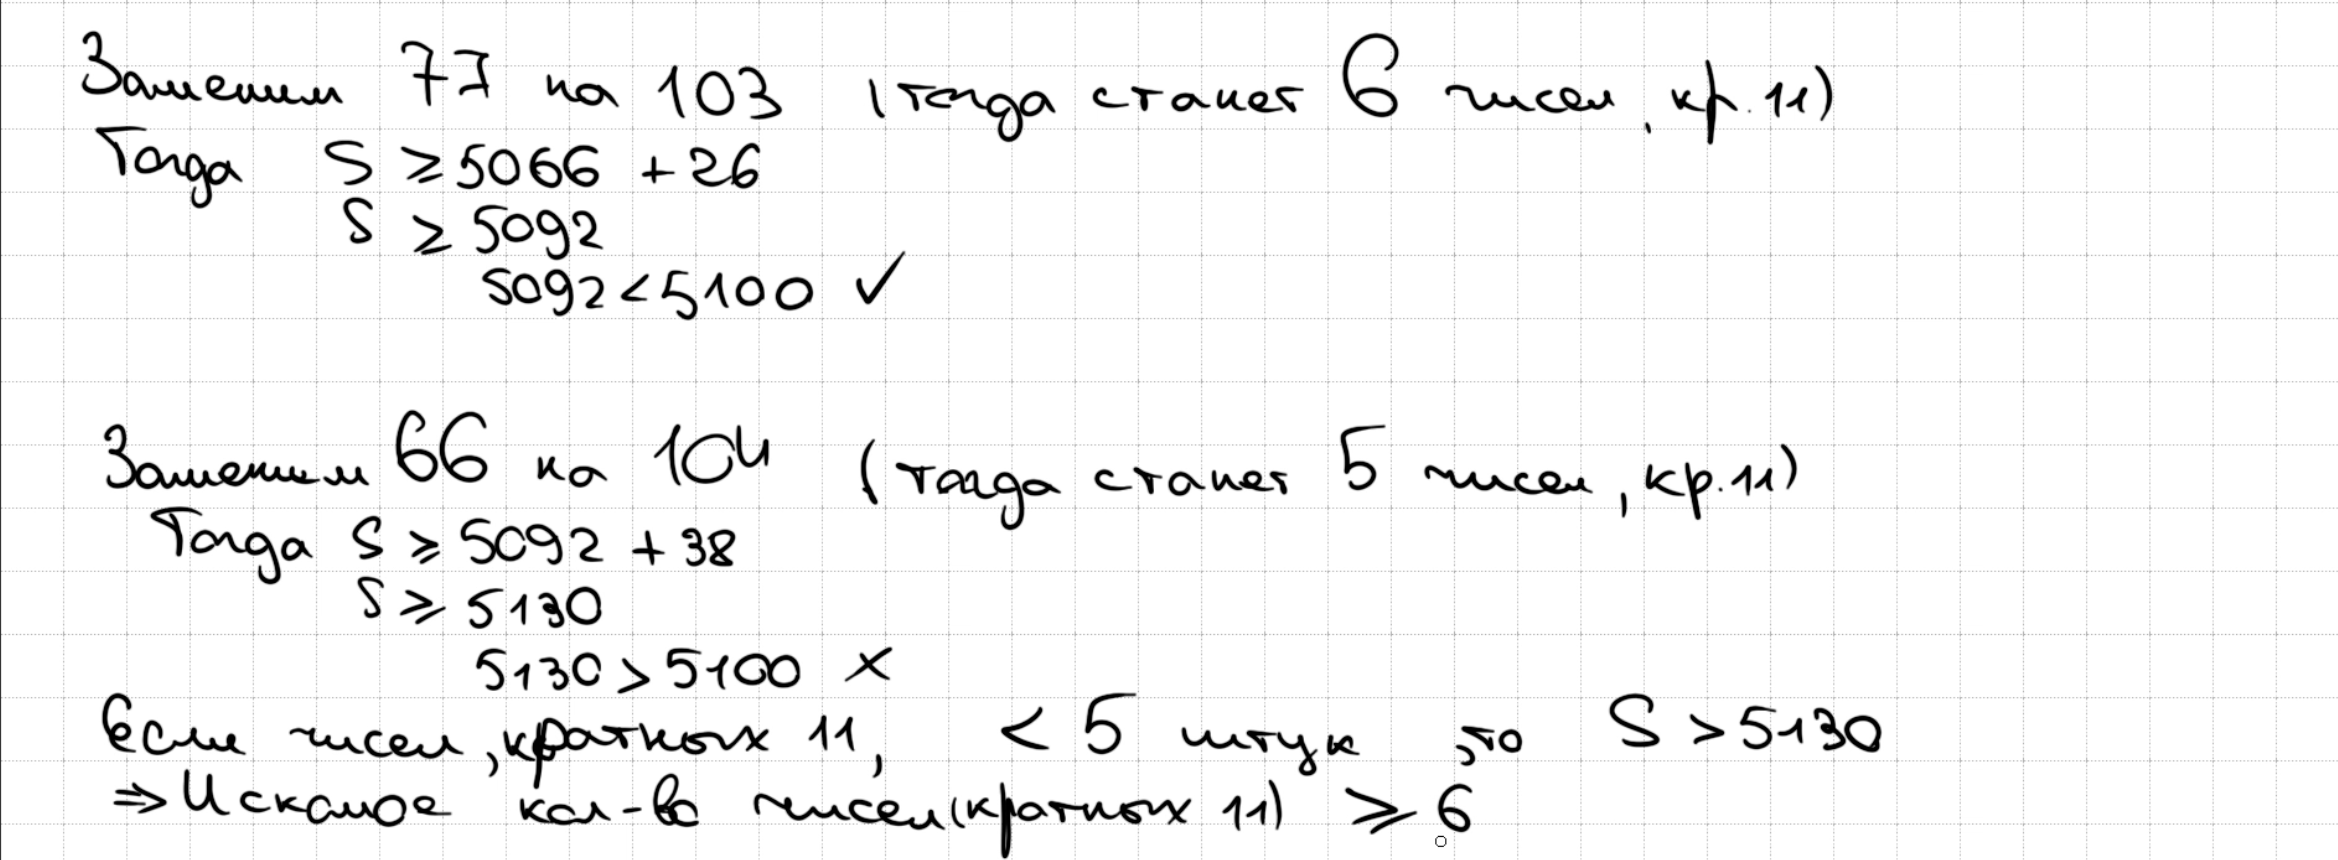 Заменим 77 на 103 (тогда станет 6 чисел, кр. 11)
Тогда S ≥ 5066 + 26
S ≥ 5092
5092 < 5100 ✓
Заменим 66 на 104 (тогда станет 5 чисел, кр. 11)
Тогда S ≥ 5092 + 38
S ≥ 5130
5130 > 5100 ×
Если чисел, кратных 11, < 5 штук, то S > 5130
⇒ Искомое кол-во чисел (кратных 11) ≥ 6